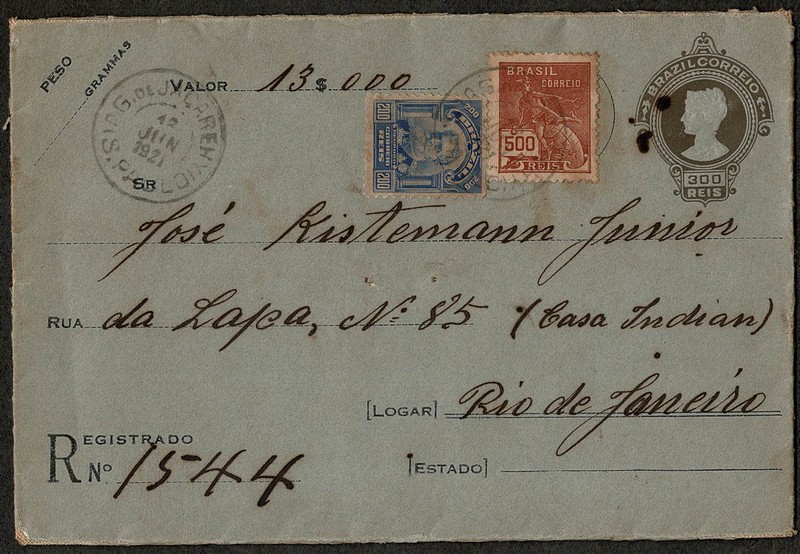 PESO
GRAMMAS
VALOR 13$000
AG. DE JACAREHY
12
JUN
1921
S. PAULO
200 BRAZIL 200
CORREIO
200 REIS 200
BRASIL
CORREIO
500
REIS
BRAZIL CORREIO
300
REIS
SR José Kistemann Junior
RUA da Lapa, Nº 85 (Casa Indian)
[LOGAR] Rio de Janeiro
REGISTRADO
Nº 1544
[ESTADO]